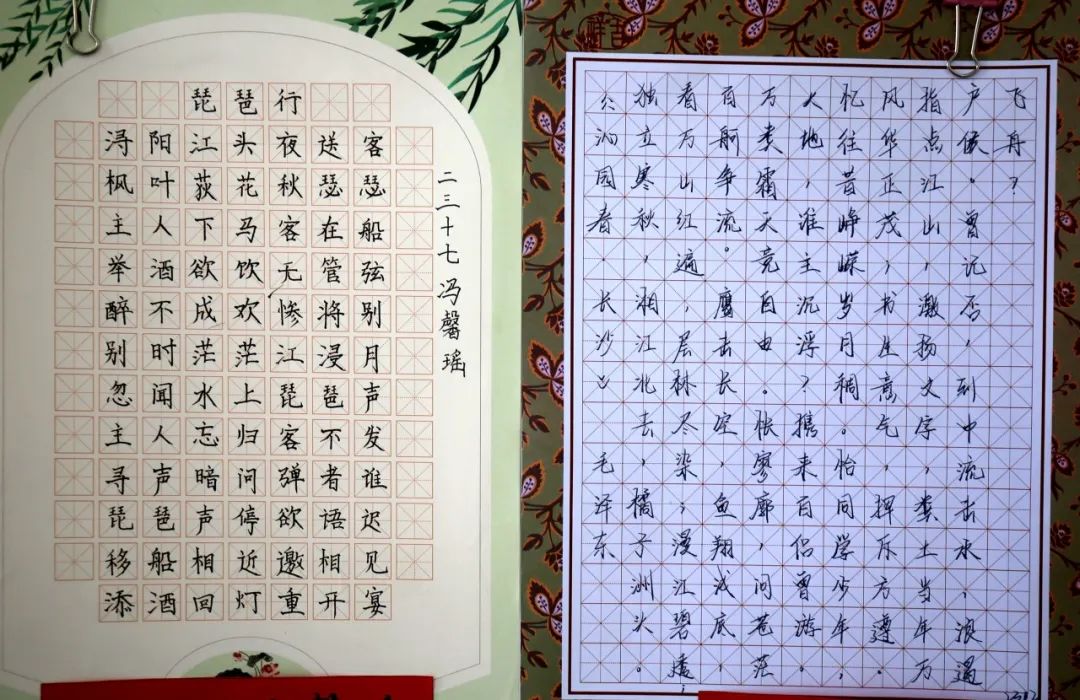 琵琶行
浔阳江头夜送客
枫叶荻花秋瑟瑟
主人下马客在船
举酒欲饮无管弦
醉不成欢惨将别
别时茫茫江浸月
忽闻水上琵琶声
主人忘归客不发
寻声暗问弹者谁
琵琶声停欲语迟
移船相近邀相见
添酒回灯重开宴
二三十七冯馨瑶
《沁园春,长沙》毛泽东
独立寒秋,湘江北去,橘子洲头。
看万山红遍,层林尽染;漫江碧透,
百舸争流。鹰击长空,鱼翔浅底,
万类霜天竞自由。怅寥廓,问苍茫
大地,谁主沉浮?携来百侣曾游。
忆往昔峥嵘岁月稠。恰同学少年,
风华正茂,书生意气,挥斥方遒。
指点江山,激扬文字,粪土当年万
户侯。曾记否,到中流击水,浪遏
飞舟?